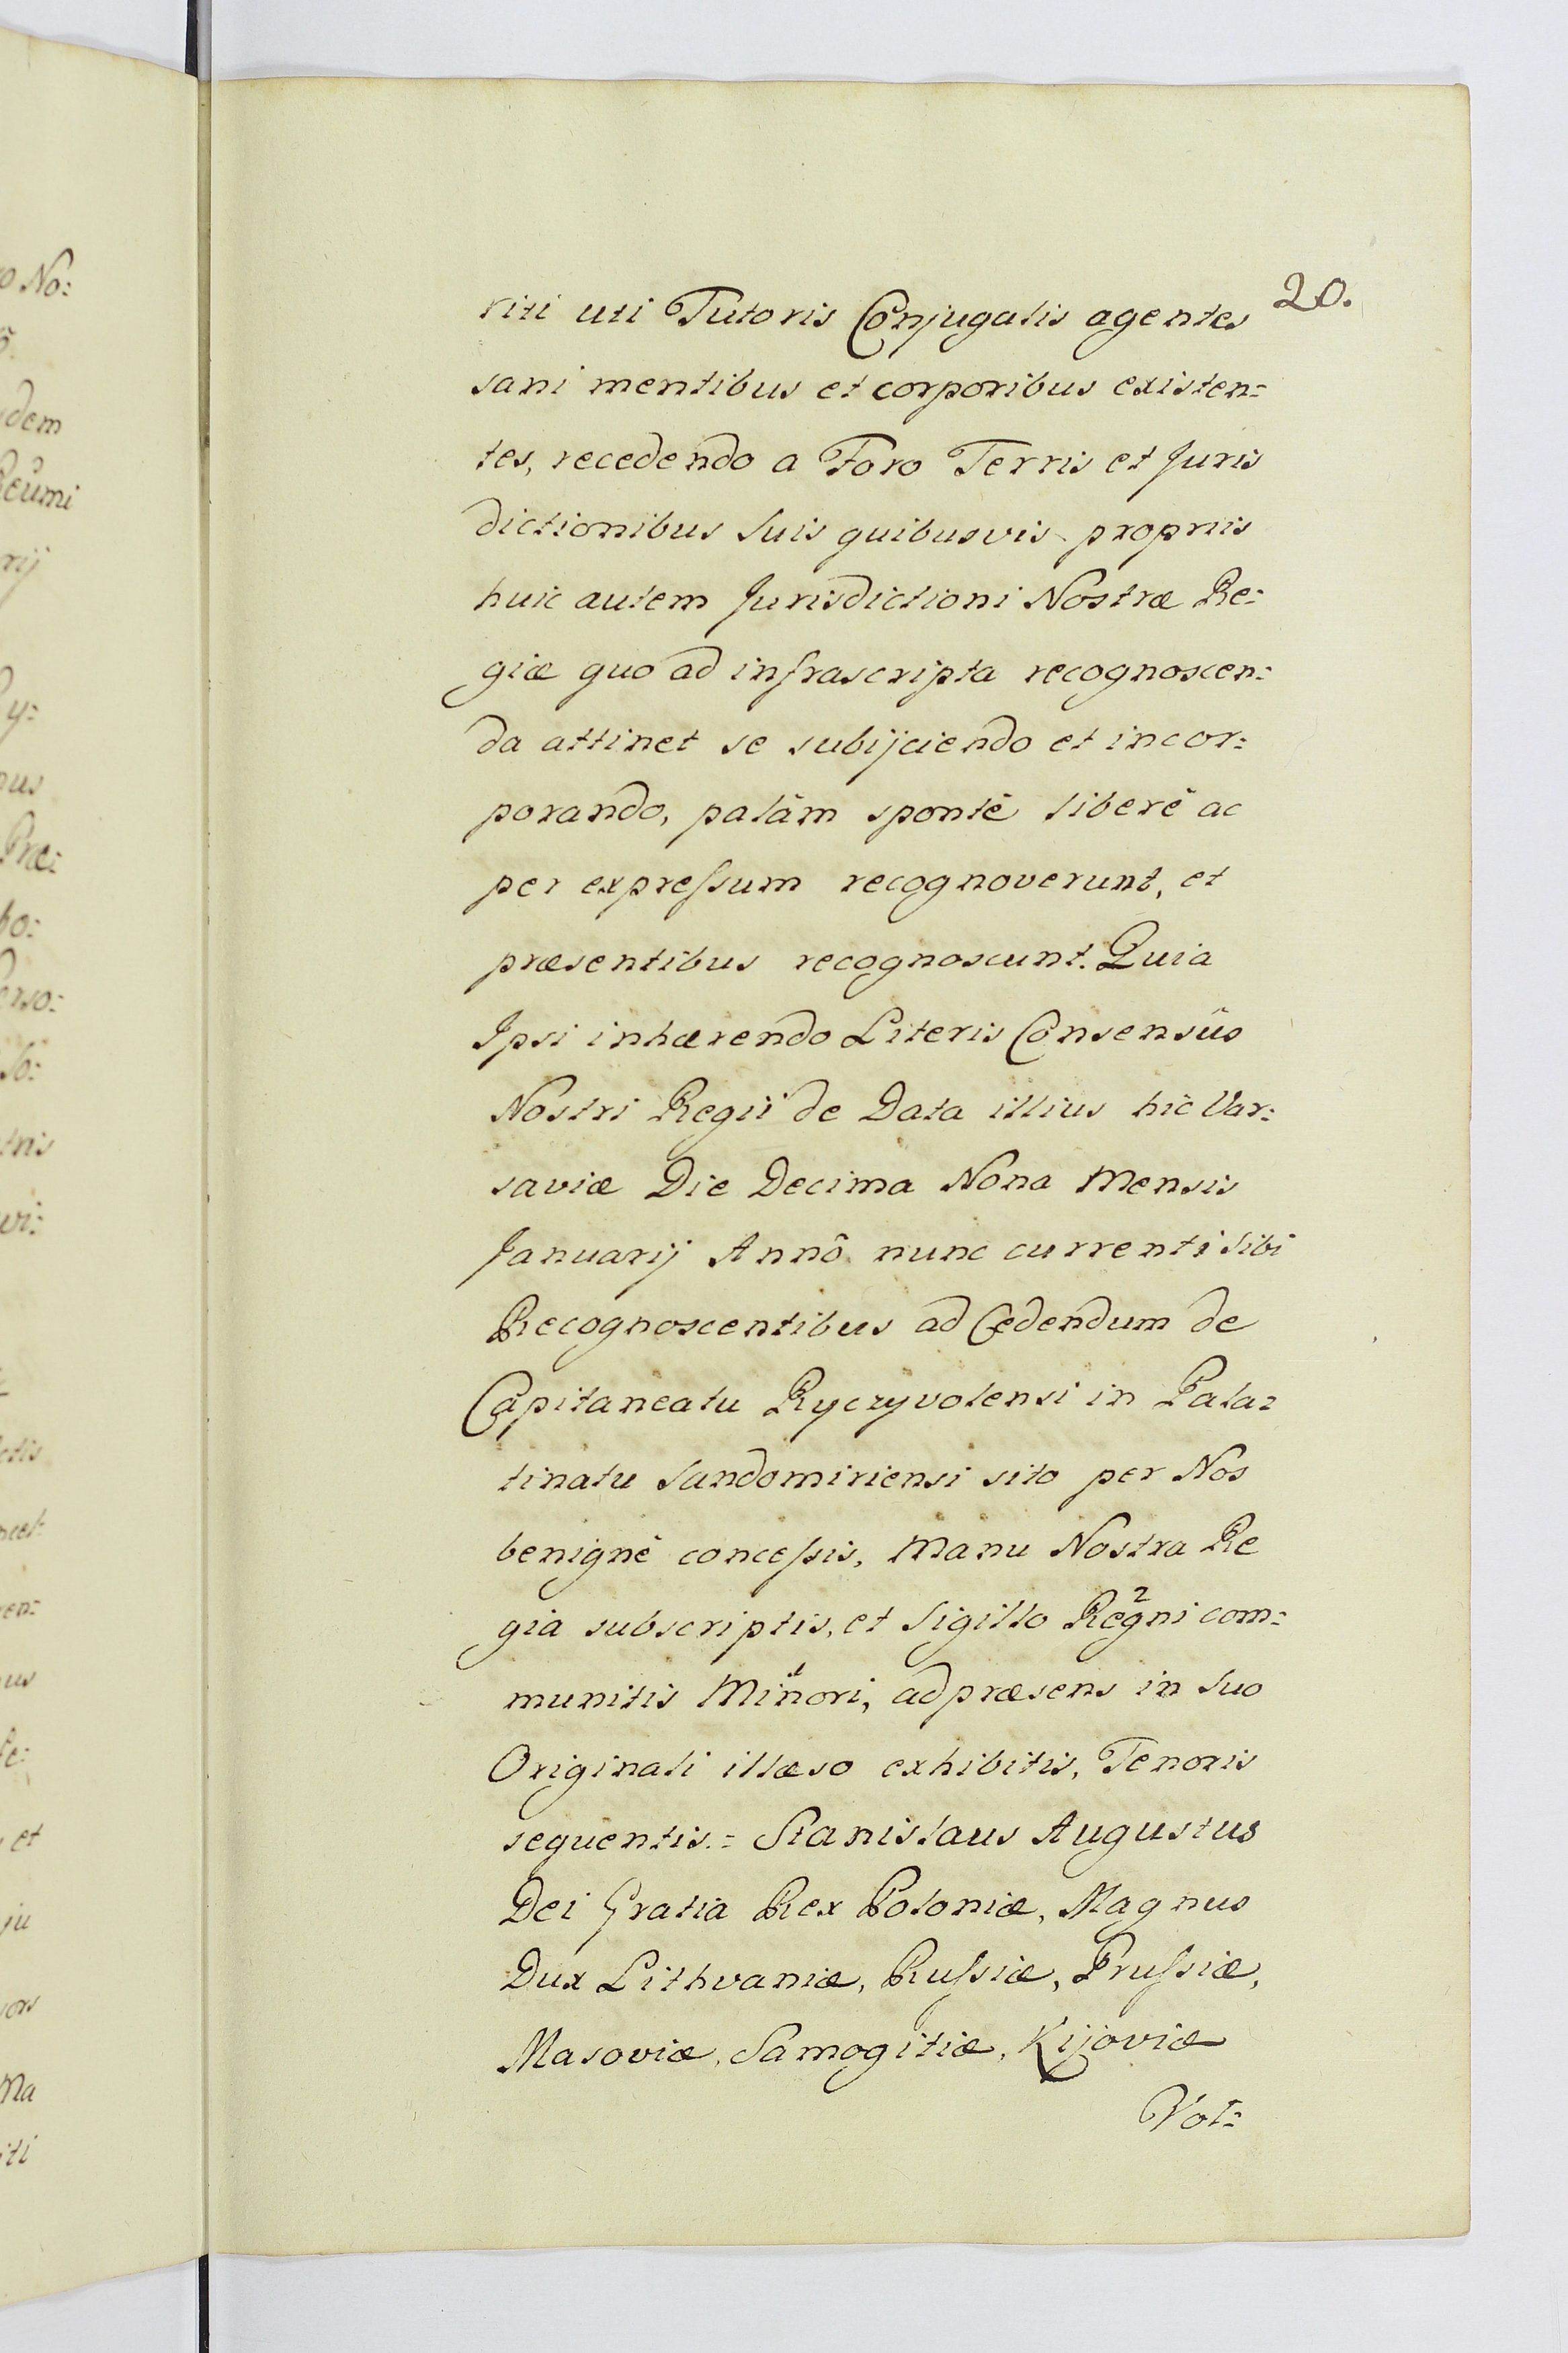 20.
riti uti Tutoris Conjugalis agentes
sani mentibus et corporibus existen=
tes, recedendo a Foro Terris et Juris
dictionibus Suis quibusvis propriis
huic autem Jurisdictioni Nostræ Re=
giæ quo ad infrascripta recognoscen=
da attinet se subijciendo et incor=
porando, palâm spontè liberè ac
per expreſsum recognoverunt, et
præsentibus recognoscunt. Quia
Ipsi inhærendo Literis Consensûs
Nostri Regii de Data illius hic Var=
saviæ Die Decima Nona Mensis
Januarij Annô nunc currenti sibi
Recognoscentibus ad Cedendum de
Capitaneatu Ryczyvolensi in Pala=
tinatu Sandomiriensi sito per Nos
benignè conceſsis, Manu Nostra Re
gia subscriptis, et Sigillo Regni 2 com=
munitis Minori 1, ad præsens in Suo
Originali illæso exhibitis, Tenoris
sequentis.= Stanislaus Augustus
Dei Gratia Rex Poloniæ, Magnus
Dux Lithvaniæ, Ruſsiæ, Pruſsiæ,
Masoviæ, Samogitiæ, Kijoviæ
Vol=
o No:
dem
Reumi
rij
y:
us
Præ:
bo:
erso:
so:
tris
vi:
ctis
en:
us
fe:
et
ju
Ma
iti